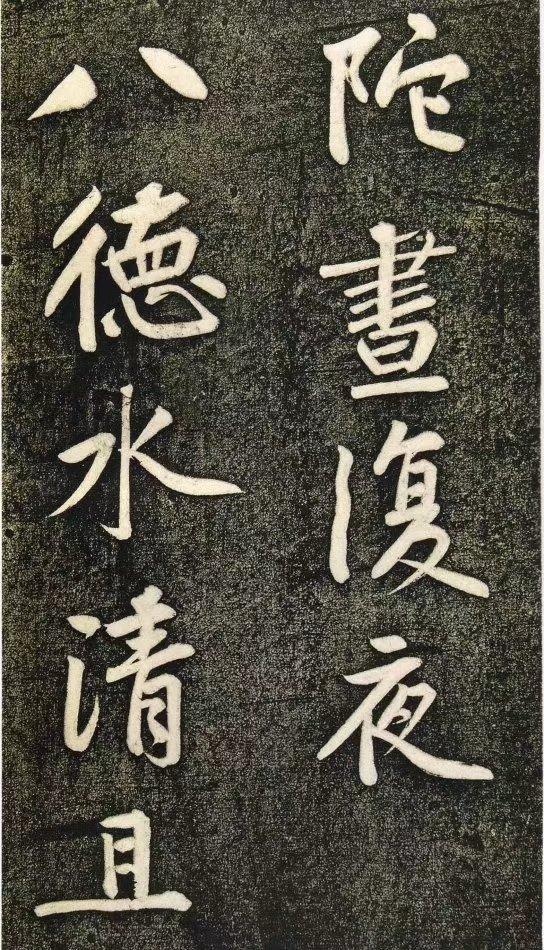 陀晝復夜
八德水清且